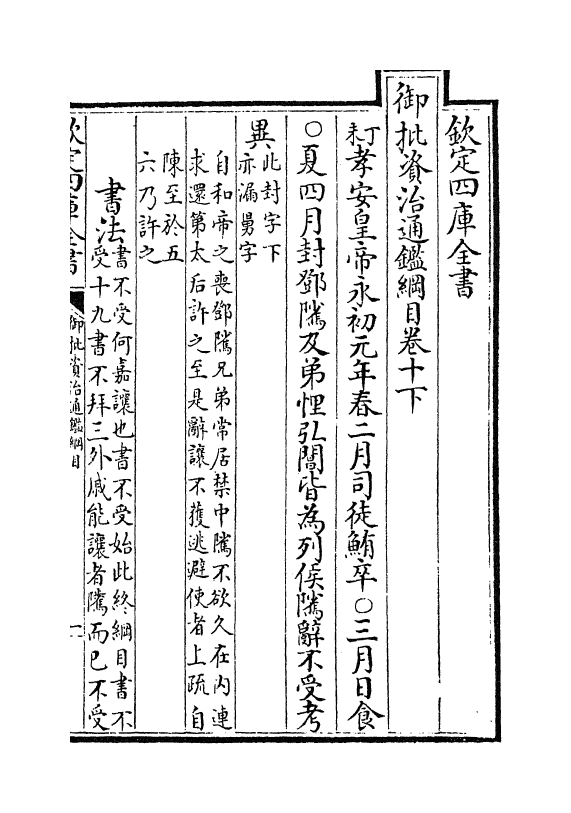 欽定四庫全書
御批資治通鑑綱目卷十下
丁未孝安皇帝永初元年春二月司徒鮪卒○三月日食
○夏四月封鄧騭及弟悝弘閶皆為列侯騭辭不受考
異此封字下
亦漏舅字
自和帝之喪鄧騭兄弟常居禁中騭不欲久在內連
求還第太后許之至是辭讓不獲逃避使者上疏自
陳至於五
六乃許之
書法書不受何嘉讓也書不受始此終綱目書不
受十九書不拜三外戚能讓者騭而已不受
欽定四庫全書
御批資治通鑑綱目
一